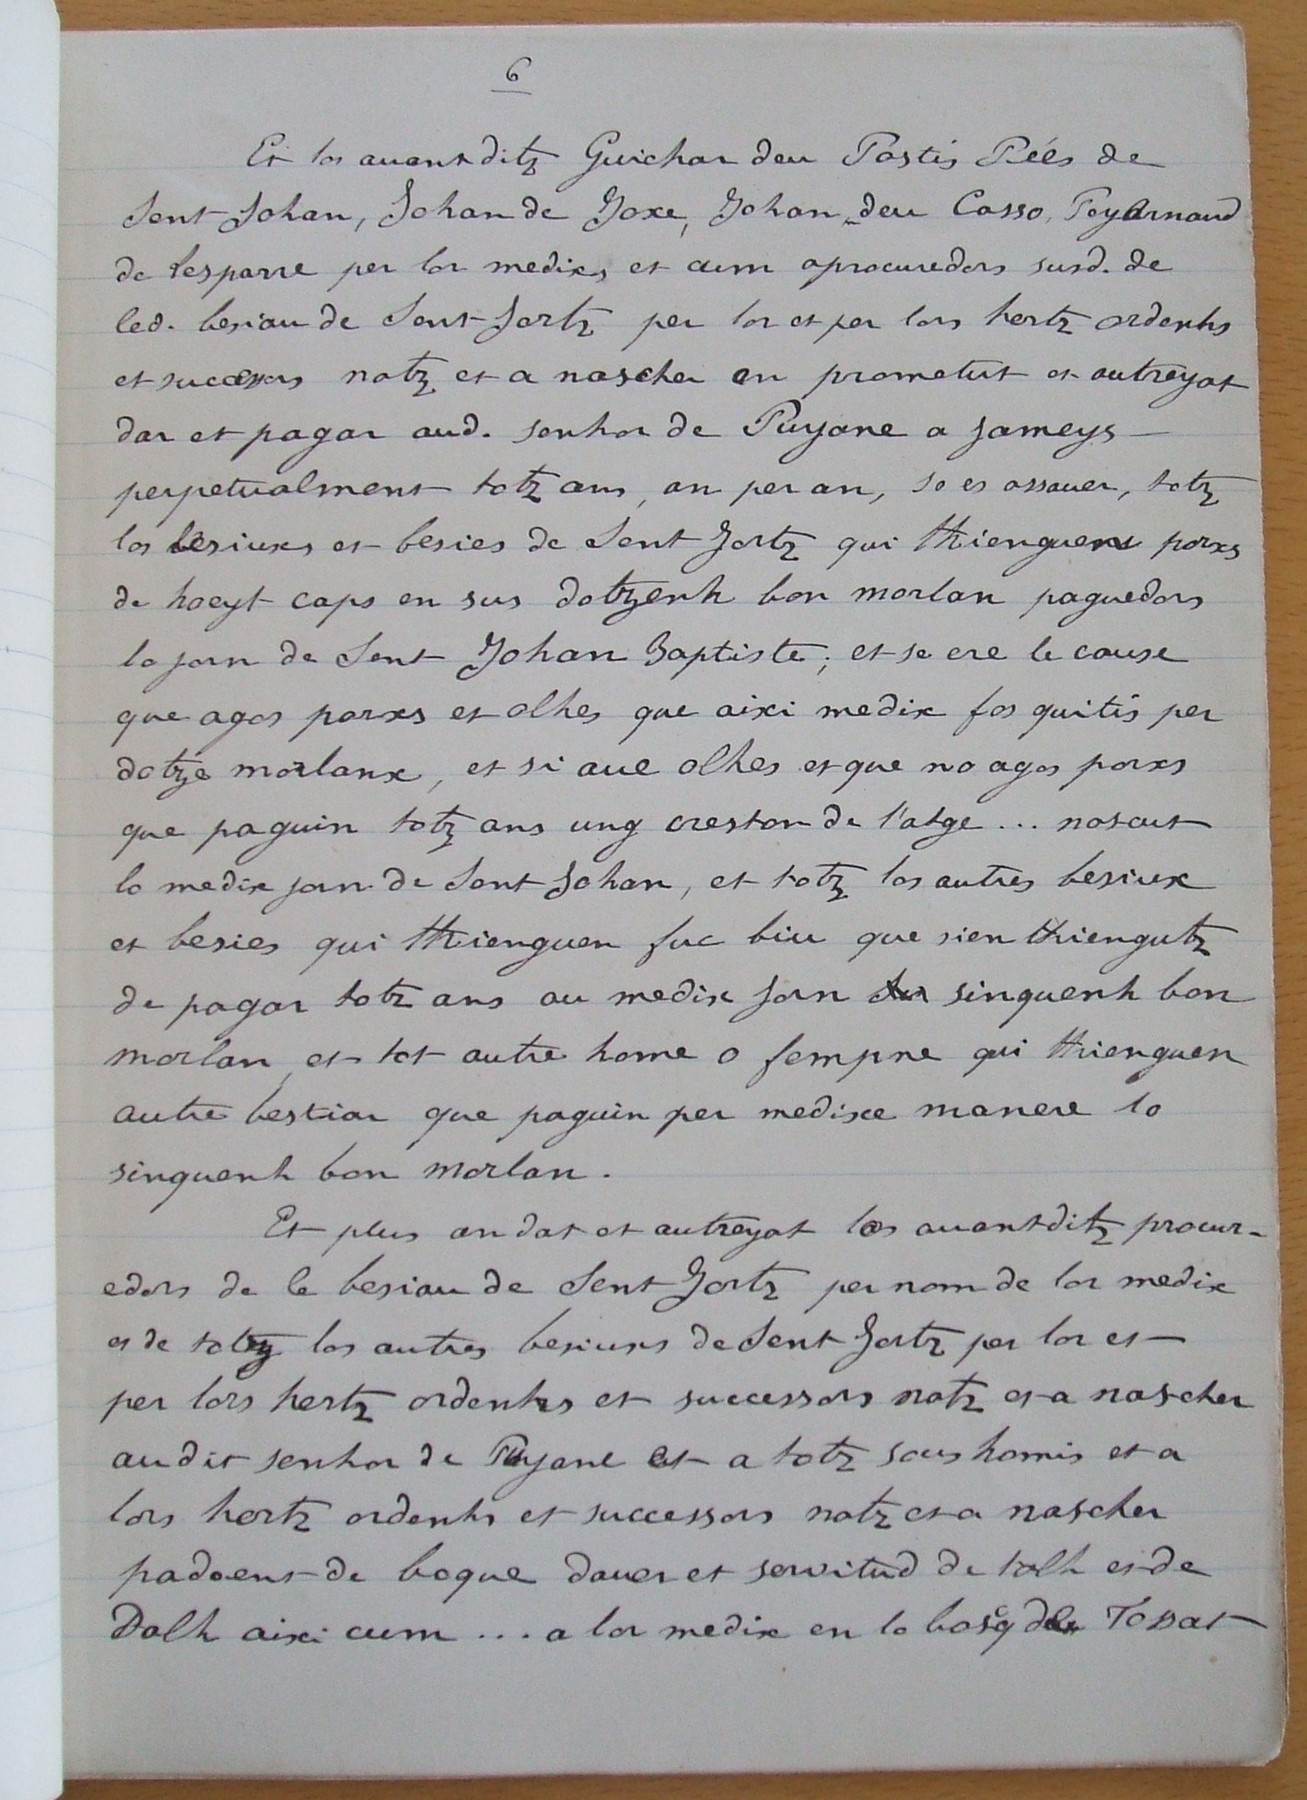 6
Et los auant ditz Guichar deu Postis Péés de
Sent Johan, Johan de Joxe, Johan deu Casso, Peyarnaud
de lesparre per lor medixs et cum aprocuredors susd. de
led. besiau de Sent Jortz per lor et per lors hertz ordenhs
et successors natz et a nascher an prometut et autreyat
dar et pagar aud. senhor de Puyane a jameys
perpetualment totz ans, an per an, so es assauer, totz
los besiuxs et besies de Sent Jortz qui thienguens porxs
de hoeyt caps en sus dotzenh bon morlan paguedors
lo jorn de Sent Johan Baptiste; et se ere le cause
que agos porxs et olhes que aixi medix fos quitis per
dotze morlanx, et si aue olhes et que no agos porxs
que paguin totz ans ung creston de l'atge ... nascut
lo medix jorn de Sent Johan, et totz los autres besiux
et besies qui thienguen fuc biu que sien thiengutz
de pagar totz ans au medix jorn sinquenh bon
morlan, et tot autre home o fempne qui thienguen
autre bestiar que paguin per medixe manere lo
sinquenh bon morlan.
Et plus an dat et autreyat los auantditz procur-
edors de le besiau de Sent Jortz per nom de lor medix
et de totz los autres besiuxs de Sent Jortz per lor et
per lors hertz ordenhs et successors natz et a nascher
audit senhor de Puyane et a totz sous homis et a
lors hertz ordenhs et successors natz et a nascher
padoent de boque dauer et servitud de talh et de
Dalh aixi cum ... a lor medix en lo bosq deu Tossat